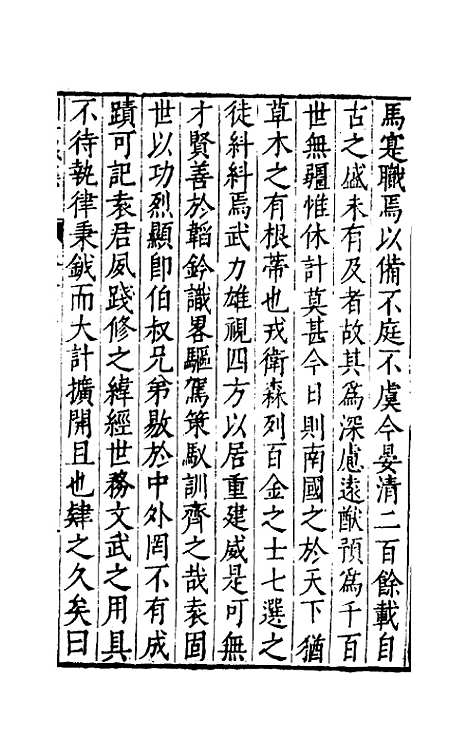 馬寔職焉以備不庭不虞今晏清二百餘載自
古之盛未有及者故其為深慮遠猷預為千百
世無疆惟休計莫甚今日則南國之於天下猶
草木之有根蒂也戎衛森列百金之士七選之
徒糾糾焉武力雄視四方以居重建威是可無
才賢善於韜鈐識畧驅駕策馭訓齊之哉袁固
世以功烈顯即伯叔兄弟敭於中外罔不有成
蹟可記袁君夙踐修之緯經世務文武之用具
不待執律秉鉞而大計擴開且也肄之久矣曰